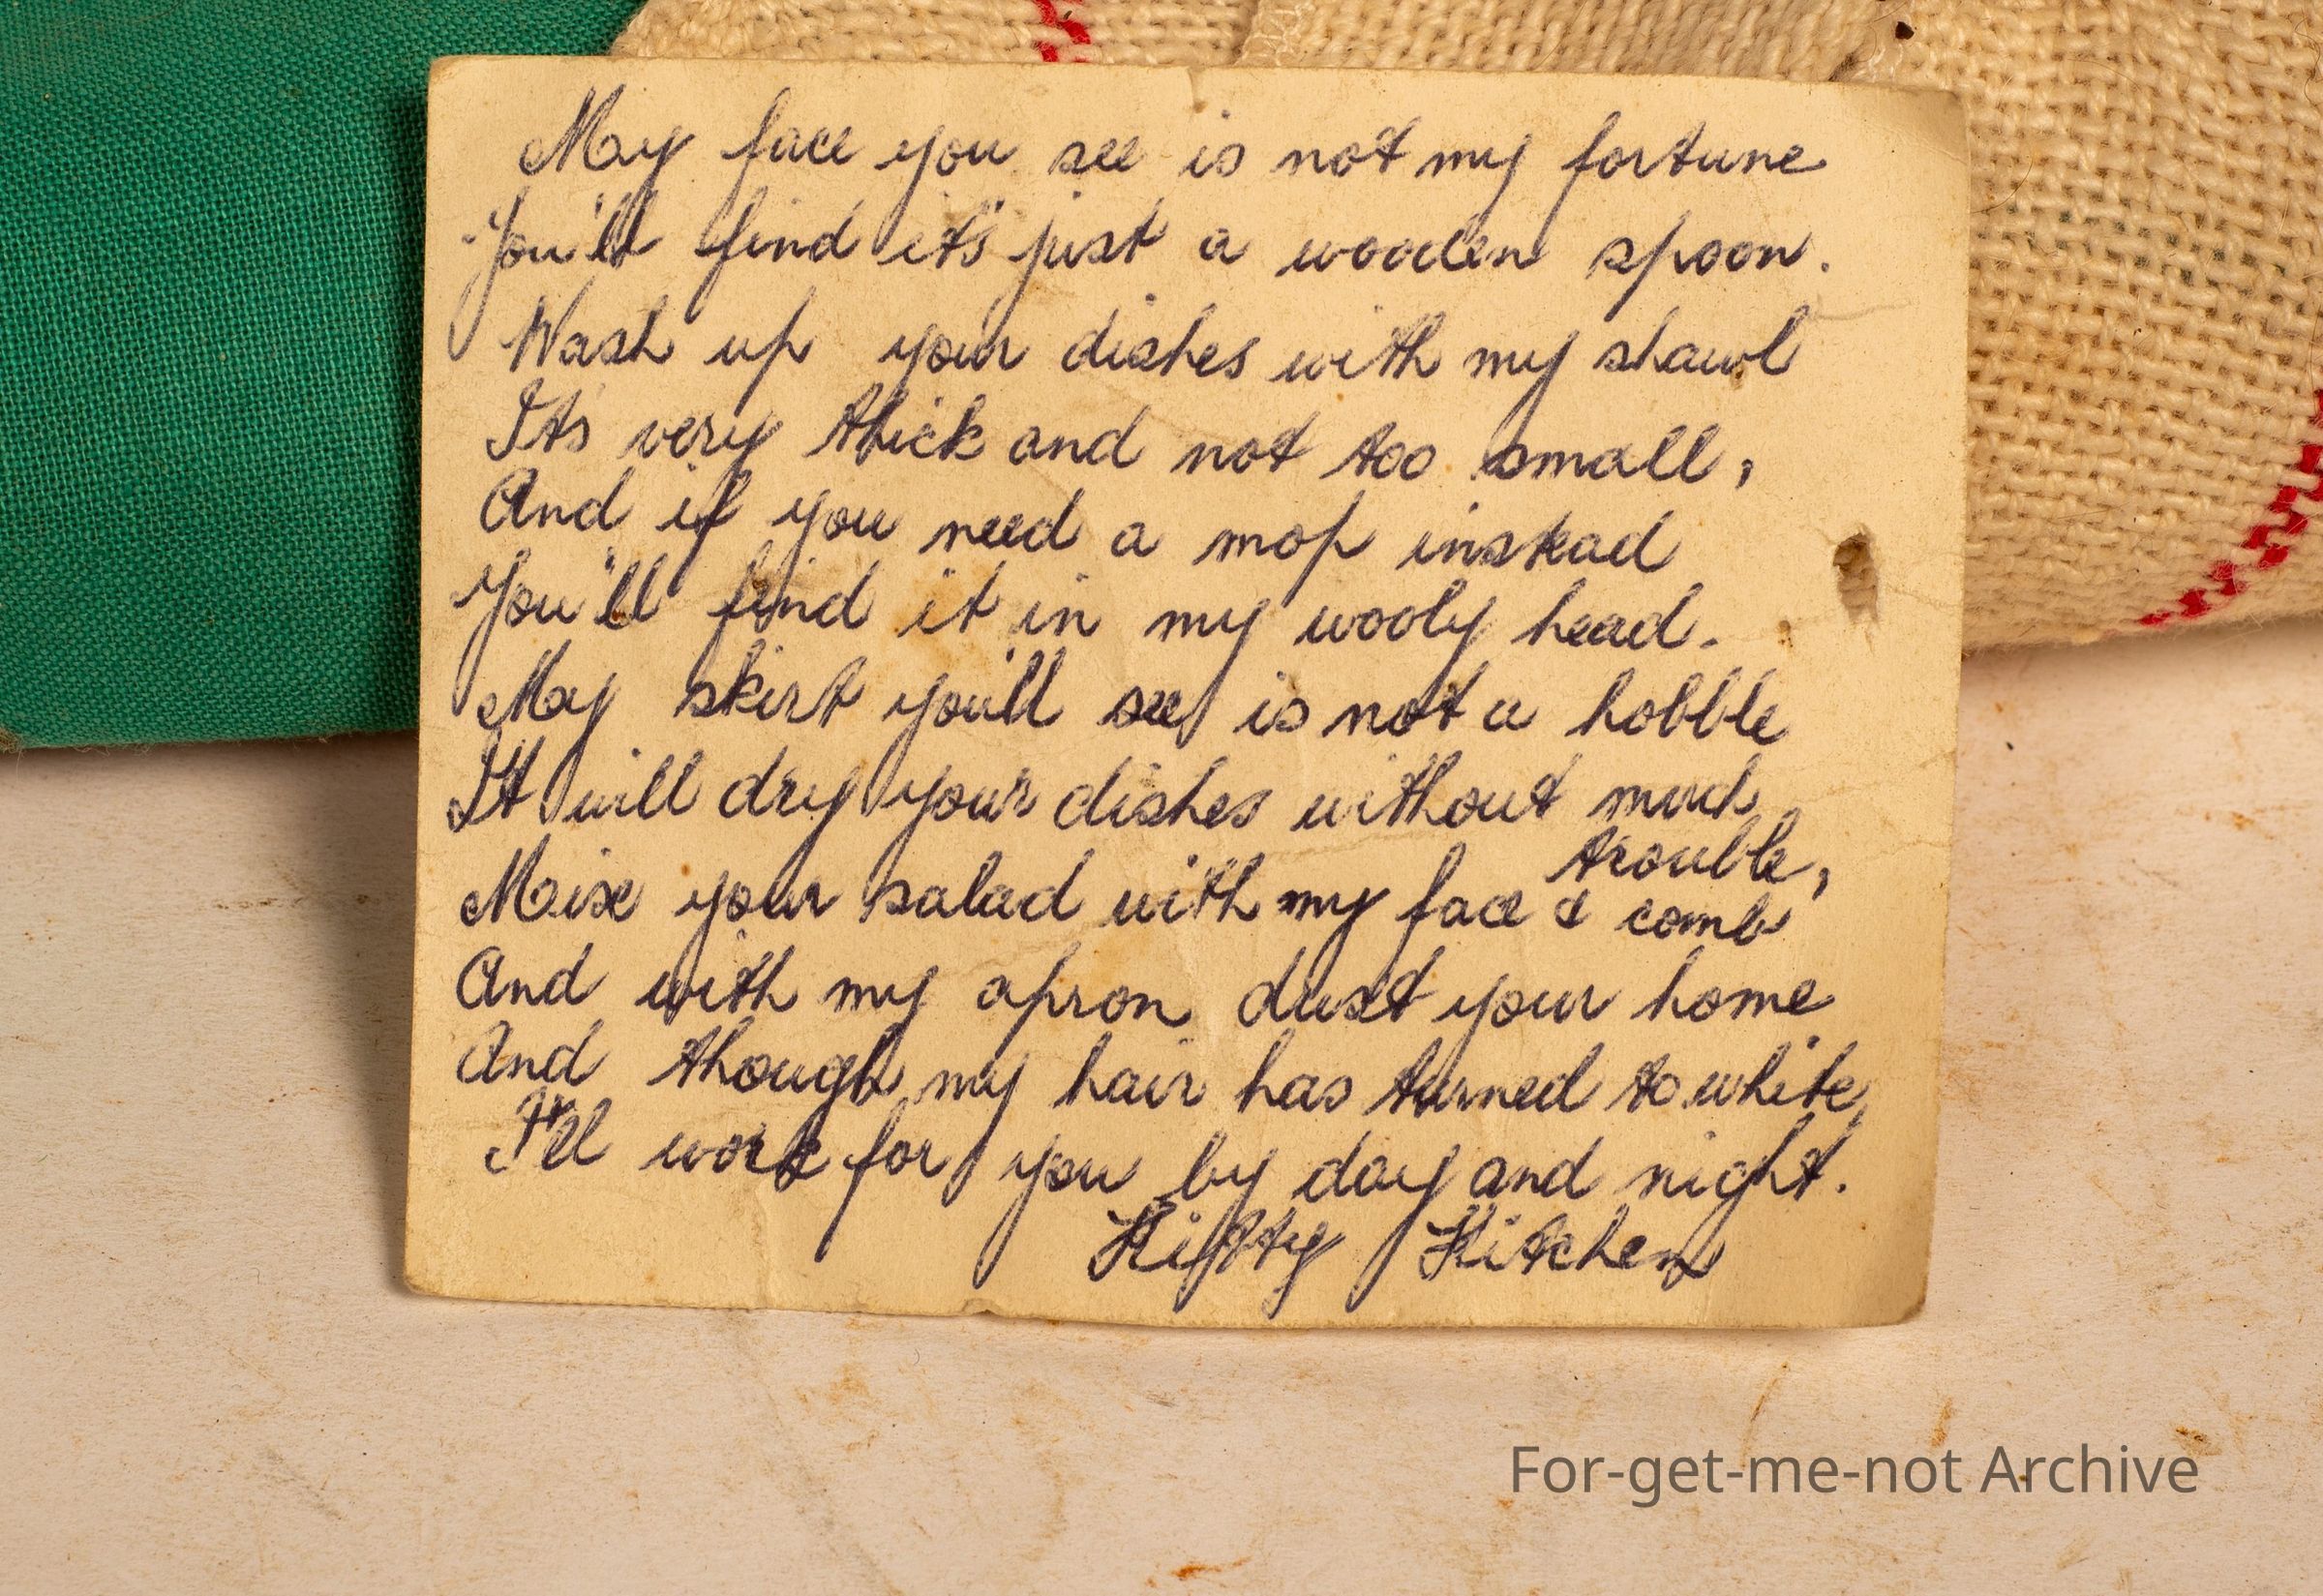 May face you see is not my fortune
You'll find it's just a wooden spoon.
Wash up your dishes with my shawl
Its very thick and not too small,
And if you need a mop instead
You'll find it in my wooly head.
May skirt you'll see is not a hobble
It will dry your dishes without much
trouble,
Maix your salad with my face & comb
And with my apron dust your home
And though my hair has turned to white,
I'll work for you by day and night.
Kifty Kitchen
For-get-me-not Archive